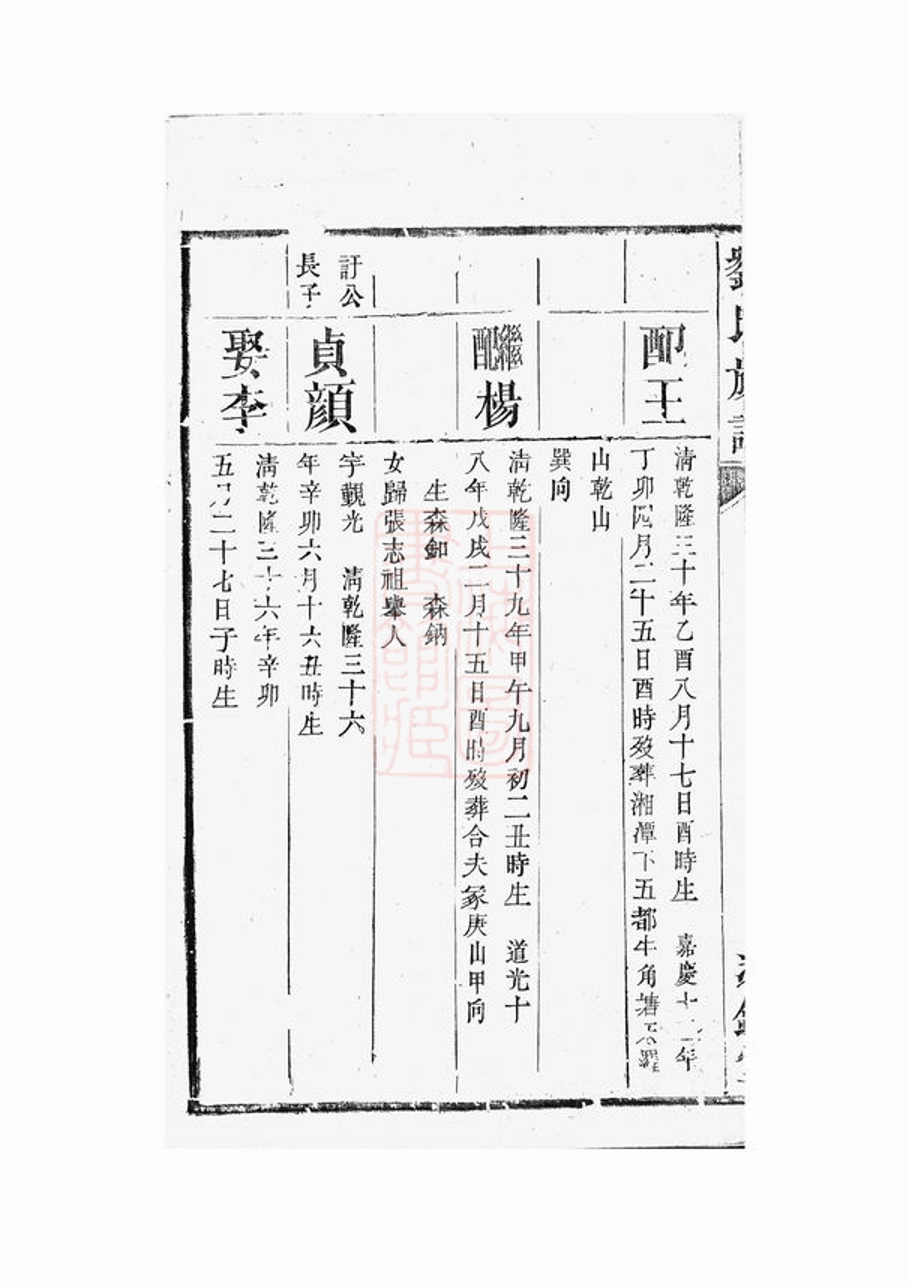 劉氏族譜
配王
清乾隆三十年乙酉八月十七日酉時生 嘉慶十二年
丁卯四月二十五日酉時歿葬湘潭下五都牛角塘
山乾山
巽向
繼配楊
清乾隆三十九年甲午九月初二丑時生 道光十
八年戊戌二月十五日酉時歿葬合夫冢庚山甲向
生森鉫 森鈉
女歸張志祖舉人
訏公
長子
貞顏
字觀光 清乾隆三十六
年辛卯六月十六丑時生
娶李
清乾隆三十六年辛卯
五月二十七日子時生